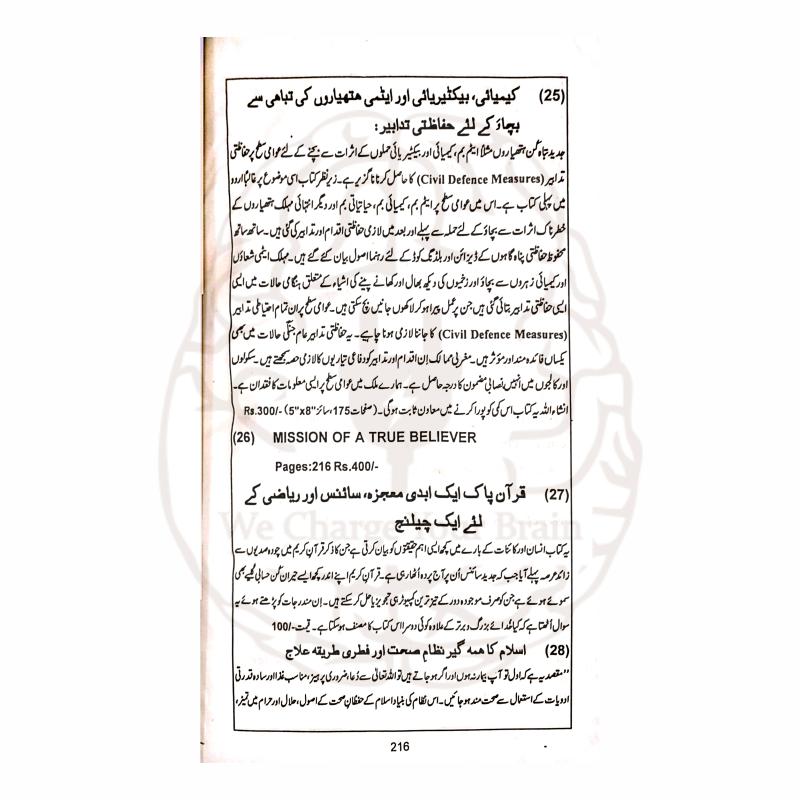 (25) کیمیائی، بیکٹیریائی اور ایٹمی ھتھیاروں کی تباھی سے
بچاؤ کے لئے حفاظتی تدابیر:
جدید تباہ کن ہتھیاروں مثلاً ایٹم بم، کیمیائی اور بیکٹیریائی حملوں کے اثرات سے بچنے کے لئے عوامی سطح پر حفاظتی
تدابیر (Civil Defence Measures) کا حاصل کرنا ناگزیر ہے۔ زیر نظر کتاب اسی موضوع پر غالباً اردو
میں پہلی کتاب ہے۔ اس میں عوامی سطح پر ایٹم بم، کیمیائی بم، حیاتیاتی بم اور دیگر انتہائی مہلک ہتھیاروں کے
خطرناک اثرات سے بچاؤ کے لئے حملہ سے پہلے اور بعد میں لازمی حفاظتی اقدام اور تدابیر کی گئی ہیں۔ ساتھ ساتھ
محفوظ حفاظتی پناہ گاہوں کے ڈیزائن اور بلڈنگ کوڈ کے لئے رہنما اصول بیان کئے گئے ہیں۔ مہلک ایٹمی شعاؤں
اور کیمیائی زہروں سے بچاؤ اور زخمیوں کی دیکھ بھال اور کھانے پینے کی اشیاء کے متعلق ہنگامی حالات میں ایسی
ایسی حفاظتی تدابیر بتائی گئی ہیں جن پر عمل پیرا ہو کر لاکھوں جانیں بچ سکتی ہیں۔ عوامی سطح پر ان تمام احتیاطی تدابیر
(Civil Defence Measures) کا جاننا لازمی ہونا چاہیے۔ یہ حفاظتی تدابیر عام جنگی حالات میں بھی
یکساں فائدہ مند اور مؤثر ہیں۔ مغربی ممالک ان اقدام اور تدابیر کو دفاعی تیاریوں کا لازمی حصہ سمجھتے ہیں۔ سکولوں
اور کالجوں میں انہیں نصابی مضمون کا درجہ حاصل ہے۔ ہمارے ملک میں عوامی سطح پر ایسی معلومات کا فقدان ہے۔
انشاء اللہ یہ کتاب اس کمی کو پورا کرنے میں معاون ثابت ہوگی۔ (صفحات 175، سائز 5"x8") Rs.300/-
(26) MISSION OF A TRUE BELIEVER
Pages:216 Rs.400/-
(27) قرآن پاک ایک ابدی معجزہ، سائنس اور ریاضی کے
لئے ایک چیلنج
یہ کتاب انسان اور کائنات کے بارے میں کچھ ایسی اہم حقیقتوں کو بیان کرتی ہے جن کا ذکر قرآن کریم میں چودہ صدیوں سے
زائد عرصہ پہلے آیا جب کہ جدید سائنس اُن پر آج پردہ اُٹھا رہی ہے۔ قرآن کریم اپنے اندر کچھ ایسے حیران کن حسابی کلیے بھی
سموئے ہوئے ہے جن کو صرف موجودہ دور کے تیز ترین کمپیوٹر ہی تجویز یا حل کر سکتے ہیں۔ ان مندرجات کو پڑھتے ہوئے یہ
سوال اُٹھتا ہے کہ کیا خدائے بزرگ و برتر کے علاوہ کوئی دوسرا اس کتاب کا مصنف ہو سکتا ہے۔ قیمت -/100
(28) اسلام کا ھمہ گیر نظامِ صحت اور فطری طریقہ علاج
"مقصد یہ ہے کہ اول تو آپ بیمار نہ ہوں اور اگر ہو جاتے ہیں تو اللہ تعالیٰ سے دُعا، ضروری پرہیز، مناسب غذا اور سادہ قدرتی
ادویات کے استعمال سے صحت مند ہو جائیں۔ اس نظام کی بنیاد اسلام کے حفظان صحت کے اصول، حلال اور حرام میں تمیز،
216
We Charge Your Brain